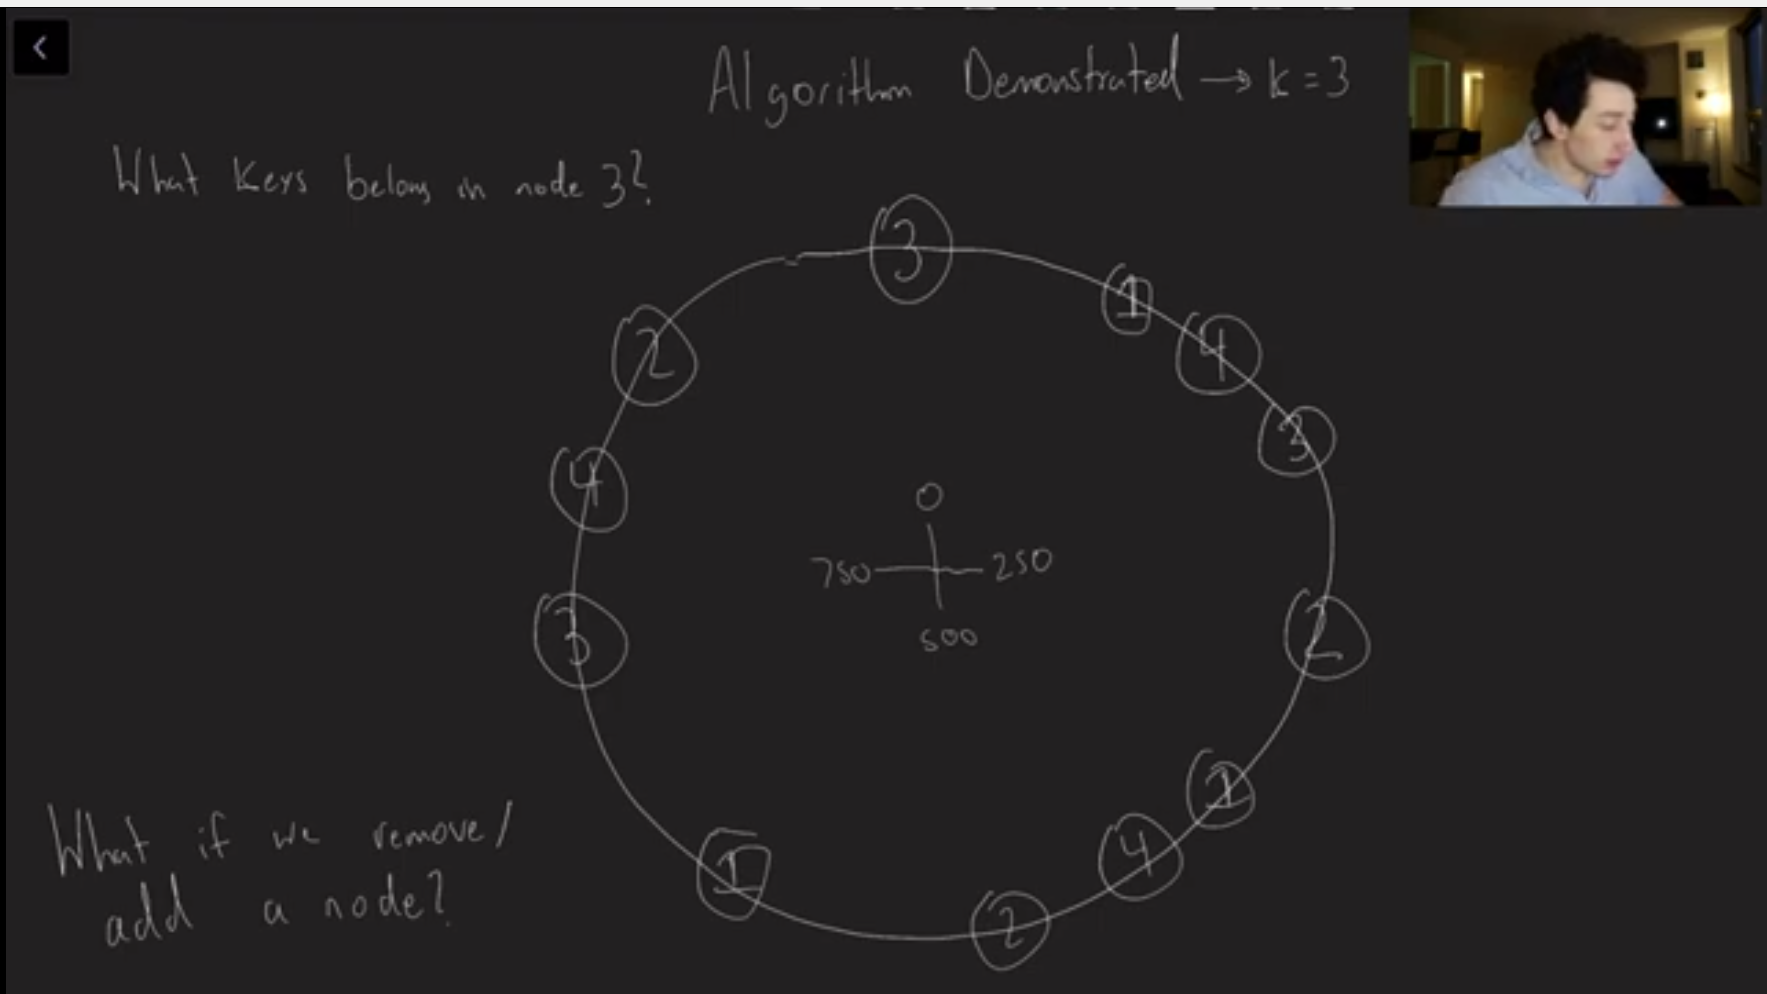 Algorithm Demonstrated → k = 3
What Keys belong in node 3?
3
1
4
3
2
1
4
2
1
3
4
2
0
750
250
500
What if we remove/
add a node?